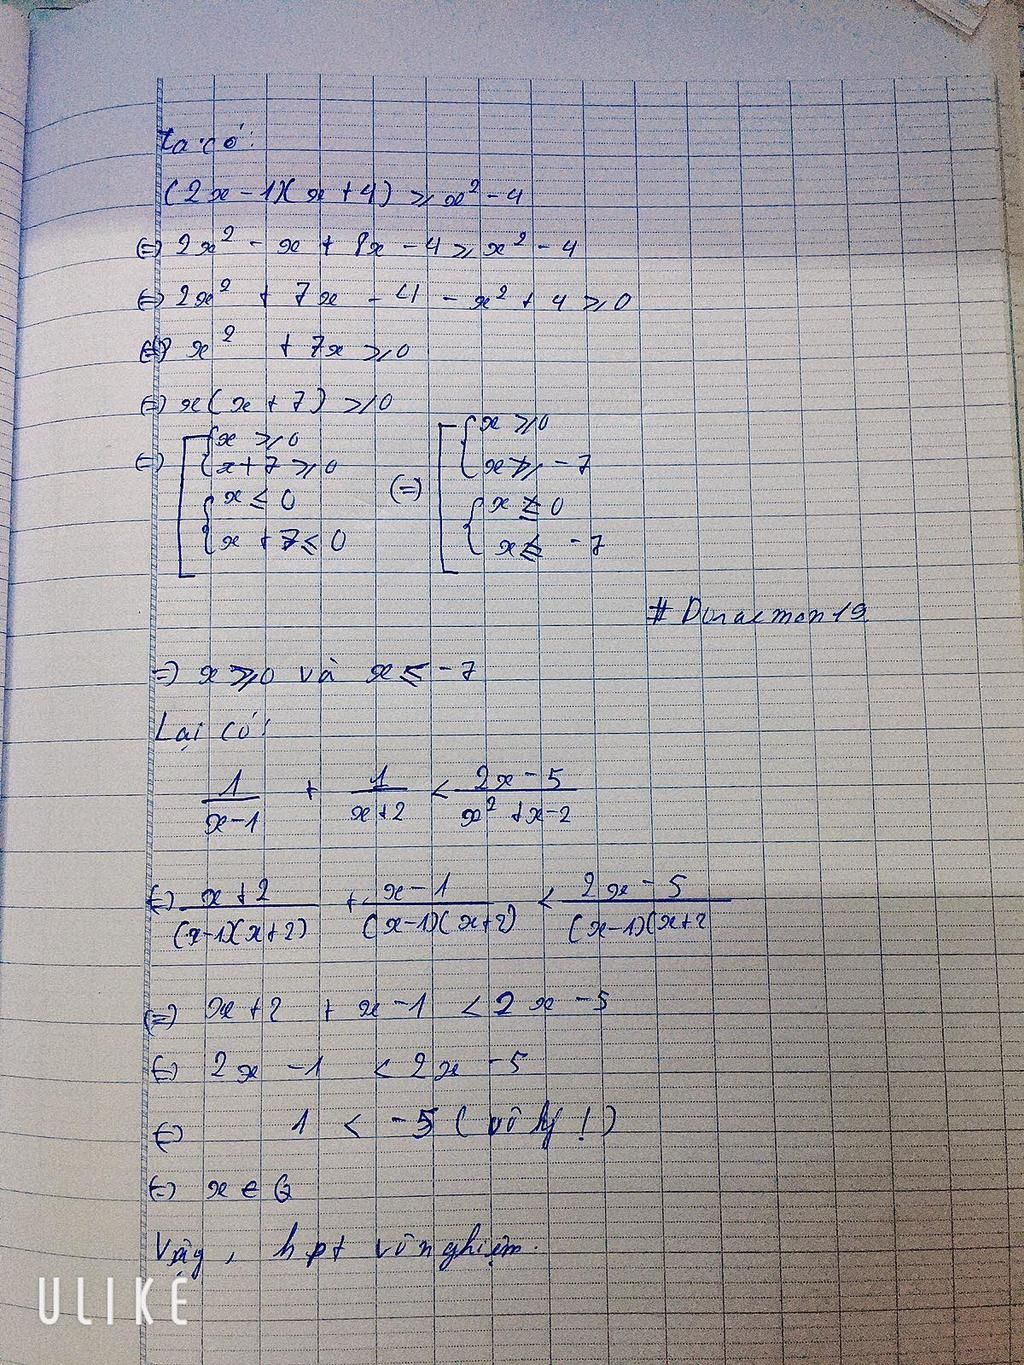 Ta có:
(2x-1)(x+4) ≥ x² - 4
⇔ 2x² - x + 8x - 4 ≥ x² - 4
⇔ 2x² + 7x - 4 - x² + 4 ≥ 0
⇔ x² + 7x ≥ 0
⇔ x(x+7) ≥ 0
⇔ [ { x ≥ 0 ⇔ [ { x ≥ 0
x+7 ≥ 0 x ≥ -7
{ x ≤ 0 { x ≤ 0
x+7 ≤ 0 x ≤ -7
# Doraemon19
⇒ x ≥ 0 và x ≤ -7
Lại có:
1/(x-1) + 1/(x+2) < (2x-5)/(x²+x-2)
⇔ (x+2)/((x-1)(x+2)) + (x-1)/((x-1)(x+2)) < (2x-5)/((x-1)(x+2
⇔ x+2 + x-1 < 2x-5
⇔ 2x -1 < 2x -5
⇔ 1 < -5 (vô lý!)
⇔ x ∈
Vậy, hpt vô nghiệm.
ULIKE